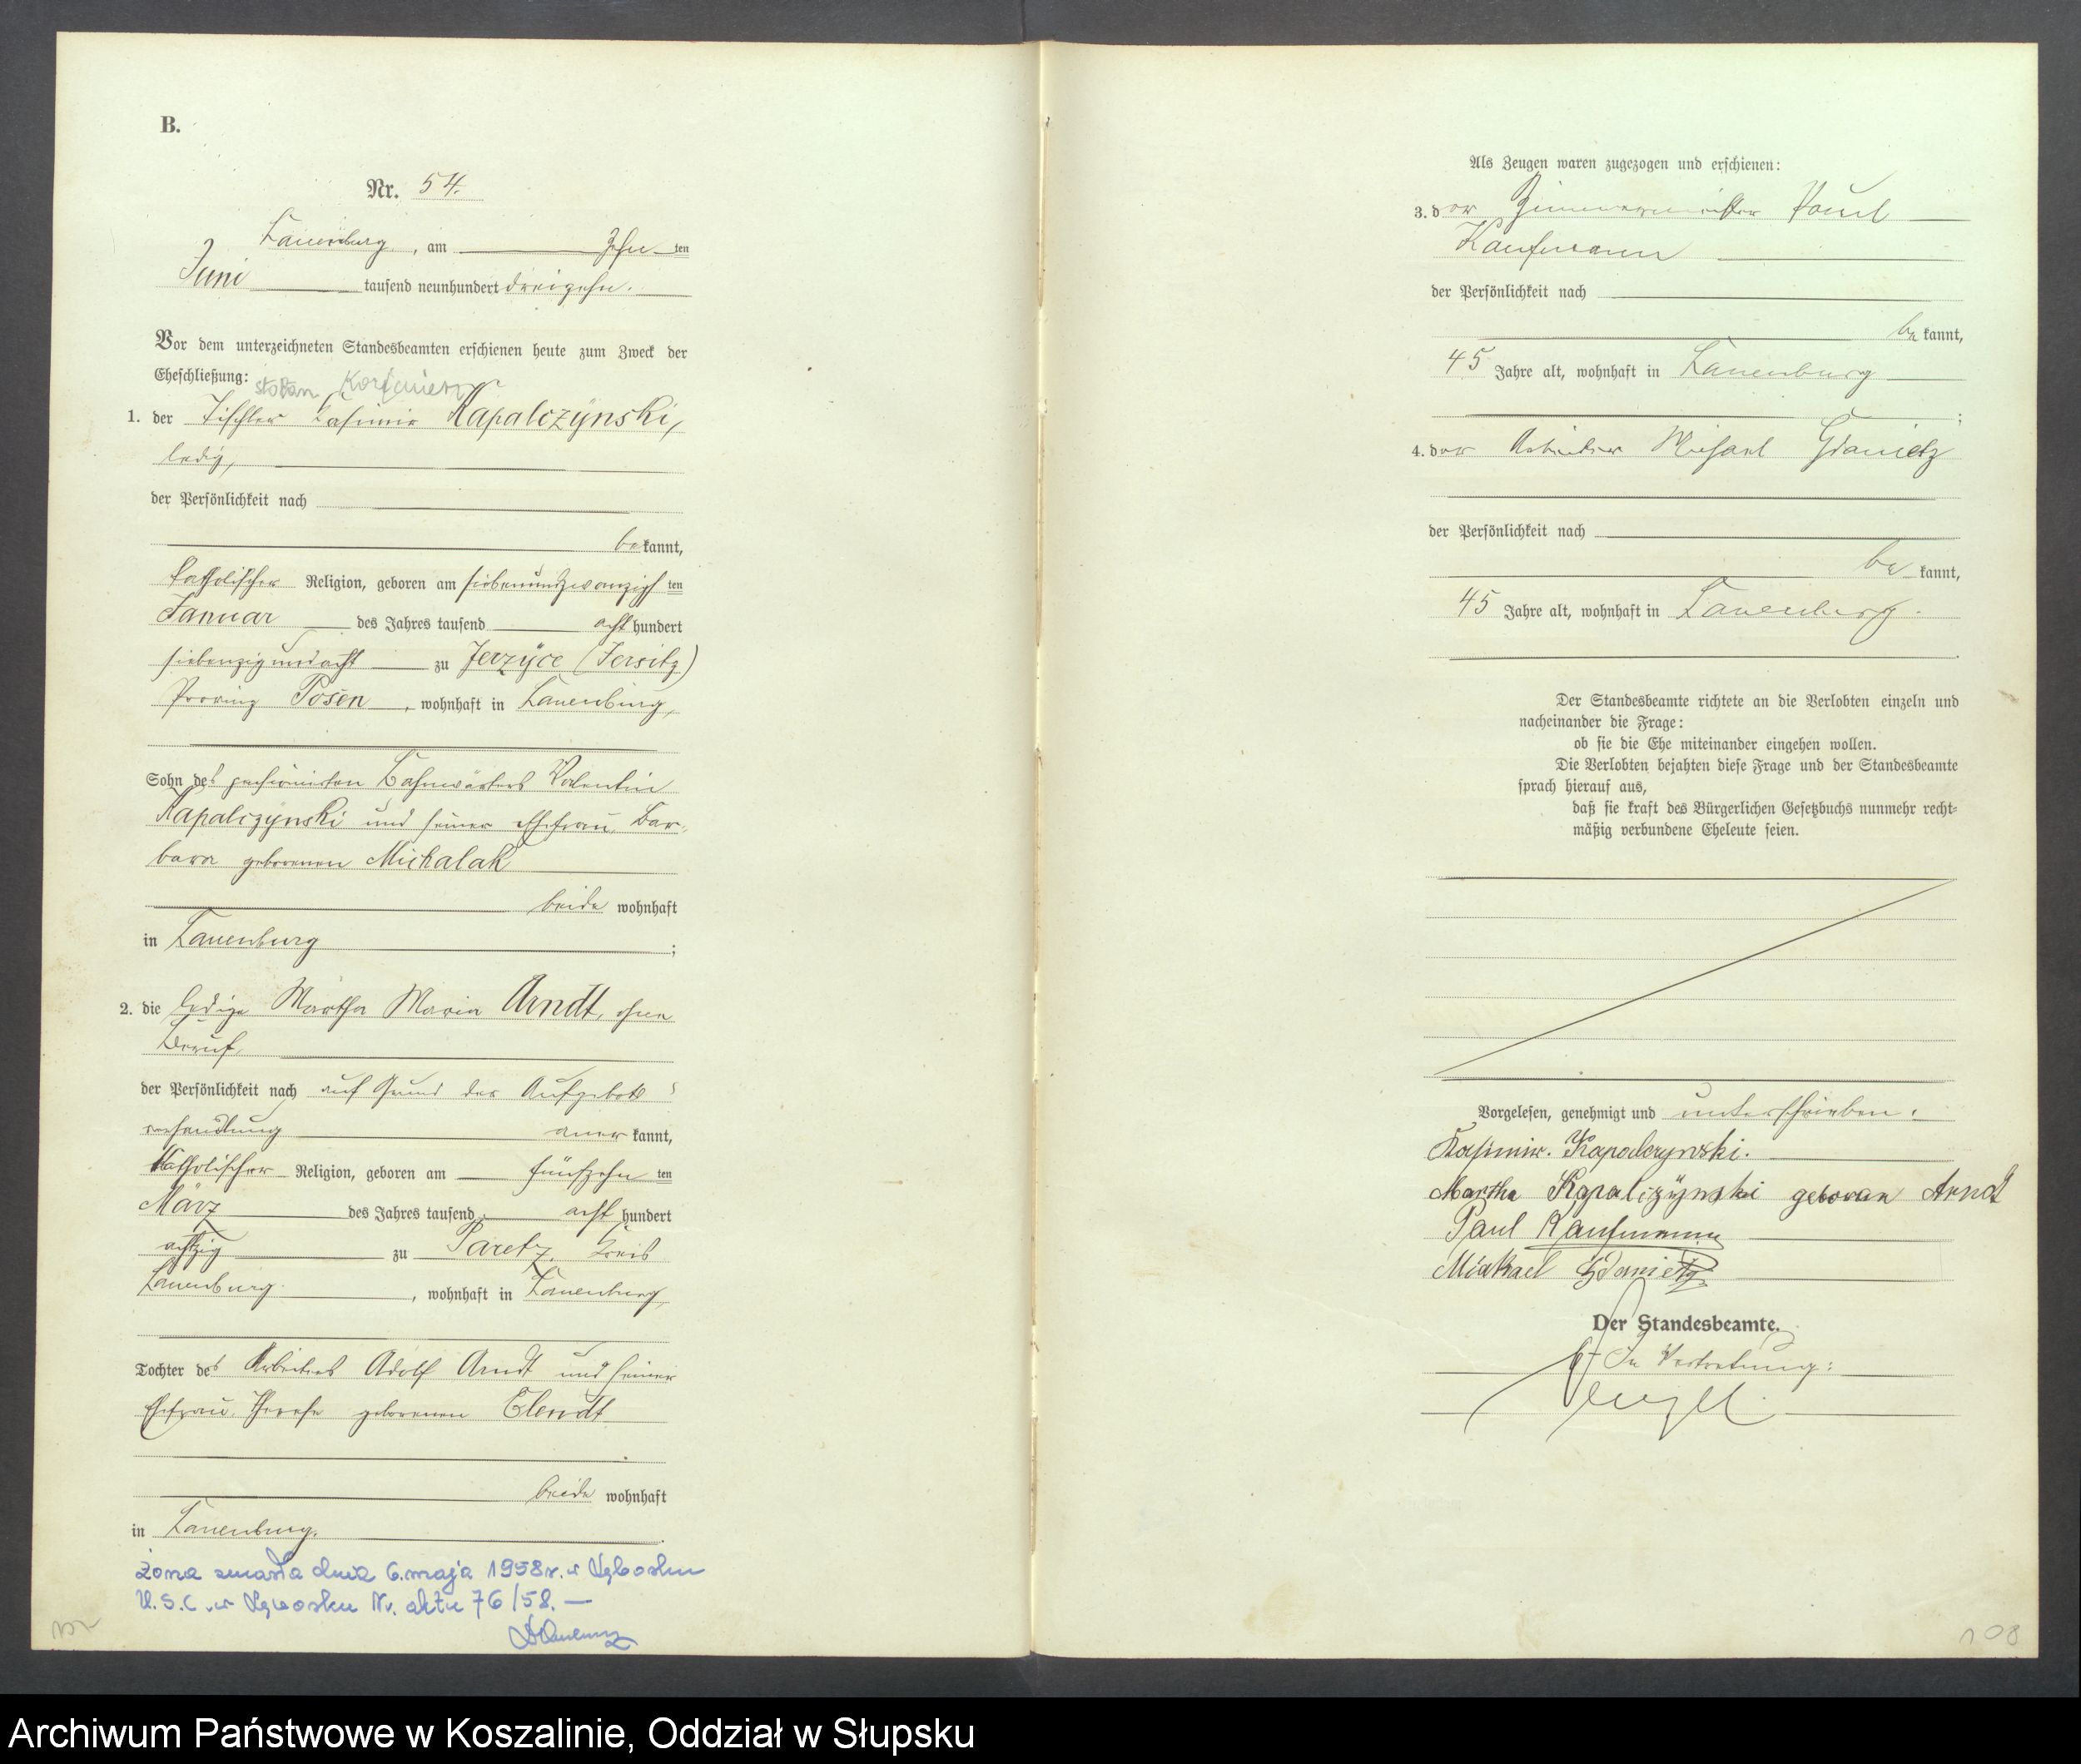 B.
Nr. 54.
Lauenburg, am zehn ten
Juni tausend neunhundert dreizehn.
Vor dem unterzeichneten Standesbeamten erschienen heute zum Zweck der
Eheschließung:
stolarz
1. der Tischler Casimir Kapalczynski,
ledig,
der Persönlichkeit nach
be kannt,
katholischer Religion, geboren am siebenundzwanzigsten
Januar des Jahres tausend acht hundert
siebenzigundacht zu Jerzyce (Jersitz)
Provinz Posen, wohnhaft in Lauenburg,
Sohn des pensionirten Bahnwärters Valentin
Kapalczynski und seiner Ehefrau Bar-
bara geborenen Michalak
beide wohnhaft
in Lauenburg;
2. die ledige Martha Maria Arndt, ohne
Beruf,
der Persönlichkeit nach auf Grund der Aufgebots
verhandlung aner kannt,
katholischer Religion, geboren am fünfzehn ten
März des Jahres tausend acht hundert
achtzig zu Paretz, Kreis
Lauenburg, wohnhaft in Lauenburg,
Tochter des Arbeiters Adolf Arndt und seiner
Ehefrau Therese geborenen Elendt
beide wohnhaft
in Lauenburg.
żona zmarła dnia 6. maja 1958r. w Lęborku
U.S.C. w Lęborku Nr. aktu 76/58. —
Als Zeugen waren zugezogen und erschienen:
3. der Zimmermeister Paul
Kaufmann
der Persönlichkeit nach
be kannt,
45 Jahre alt, wohnhaft in Lauenburg
;
4. der Arbeiter Michael Gdanietz
der Persönlichkeit nach
be kannt,
45 Jahre alt, wohnhaft in Lauenburg.
Der Standesbeamte richtete an die Verlobten einzeln und
nacheinander die Frage:
ob sie die Ehe miteinander eingehen wollen.
Die Verlobten bejahten diese Frage und der Standesbeamte
sprach hierauf aus,
daß sie kraft des Bürgerlichen Gesetzbuchs nunmehr recht-
mäßig verbundene Eheleute seien.
Vorgelesen, genehmigt und unterschrieben.
Kasimir. Kapalczynski.
Martha Kapalczynski geboren Arndt
Paul Kaufmann
Michael Gdanietz
Der Standesbeamte.
In Vertretung:
108
Archiwum Państwowe w Koszalinie, Oddział w Słupsku